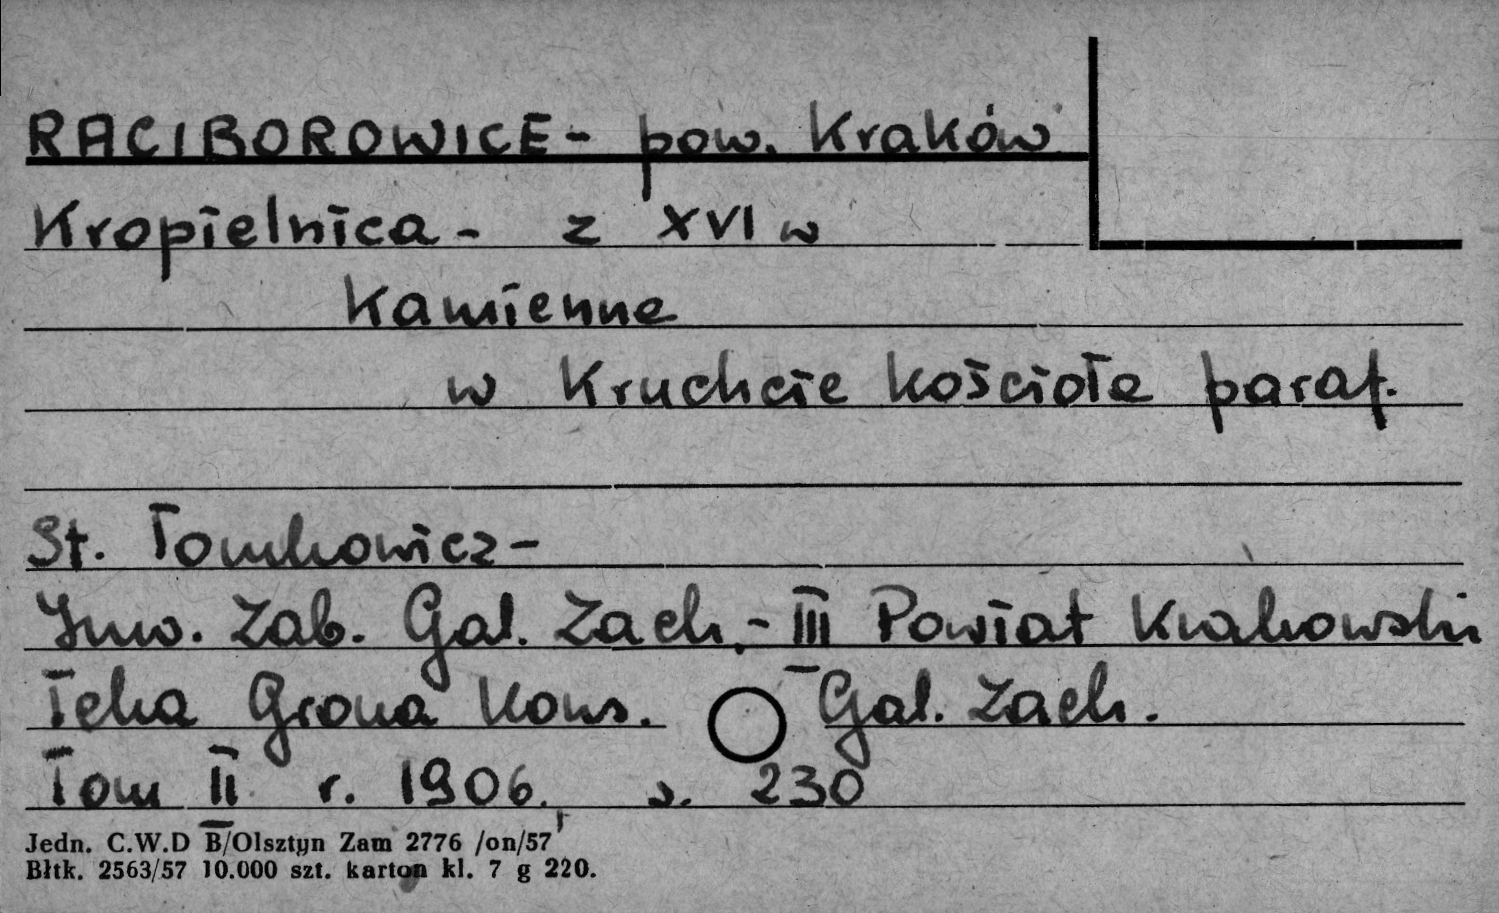 RACIBOROWICE - pow. Kraków
Kropielnica - z XVI w
Kamienne
w Kruchcie kościoła paraf.
St. Tomkowicz -
Inw. Zab. Gal. Zach. - III Powiat Krakowski
Teka Grona Kons. Gal. Zach.
Tom II r. 1906. s. 230
Jedn. C.W.D B/Olsztyn Zam 2776 /on/57
Błtk. 2563/57 10.000 szt. karton kl. 7 g 220.